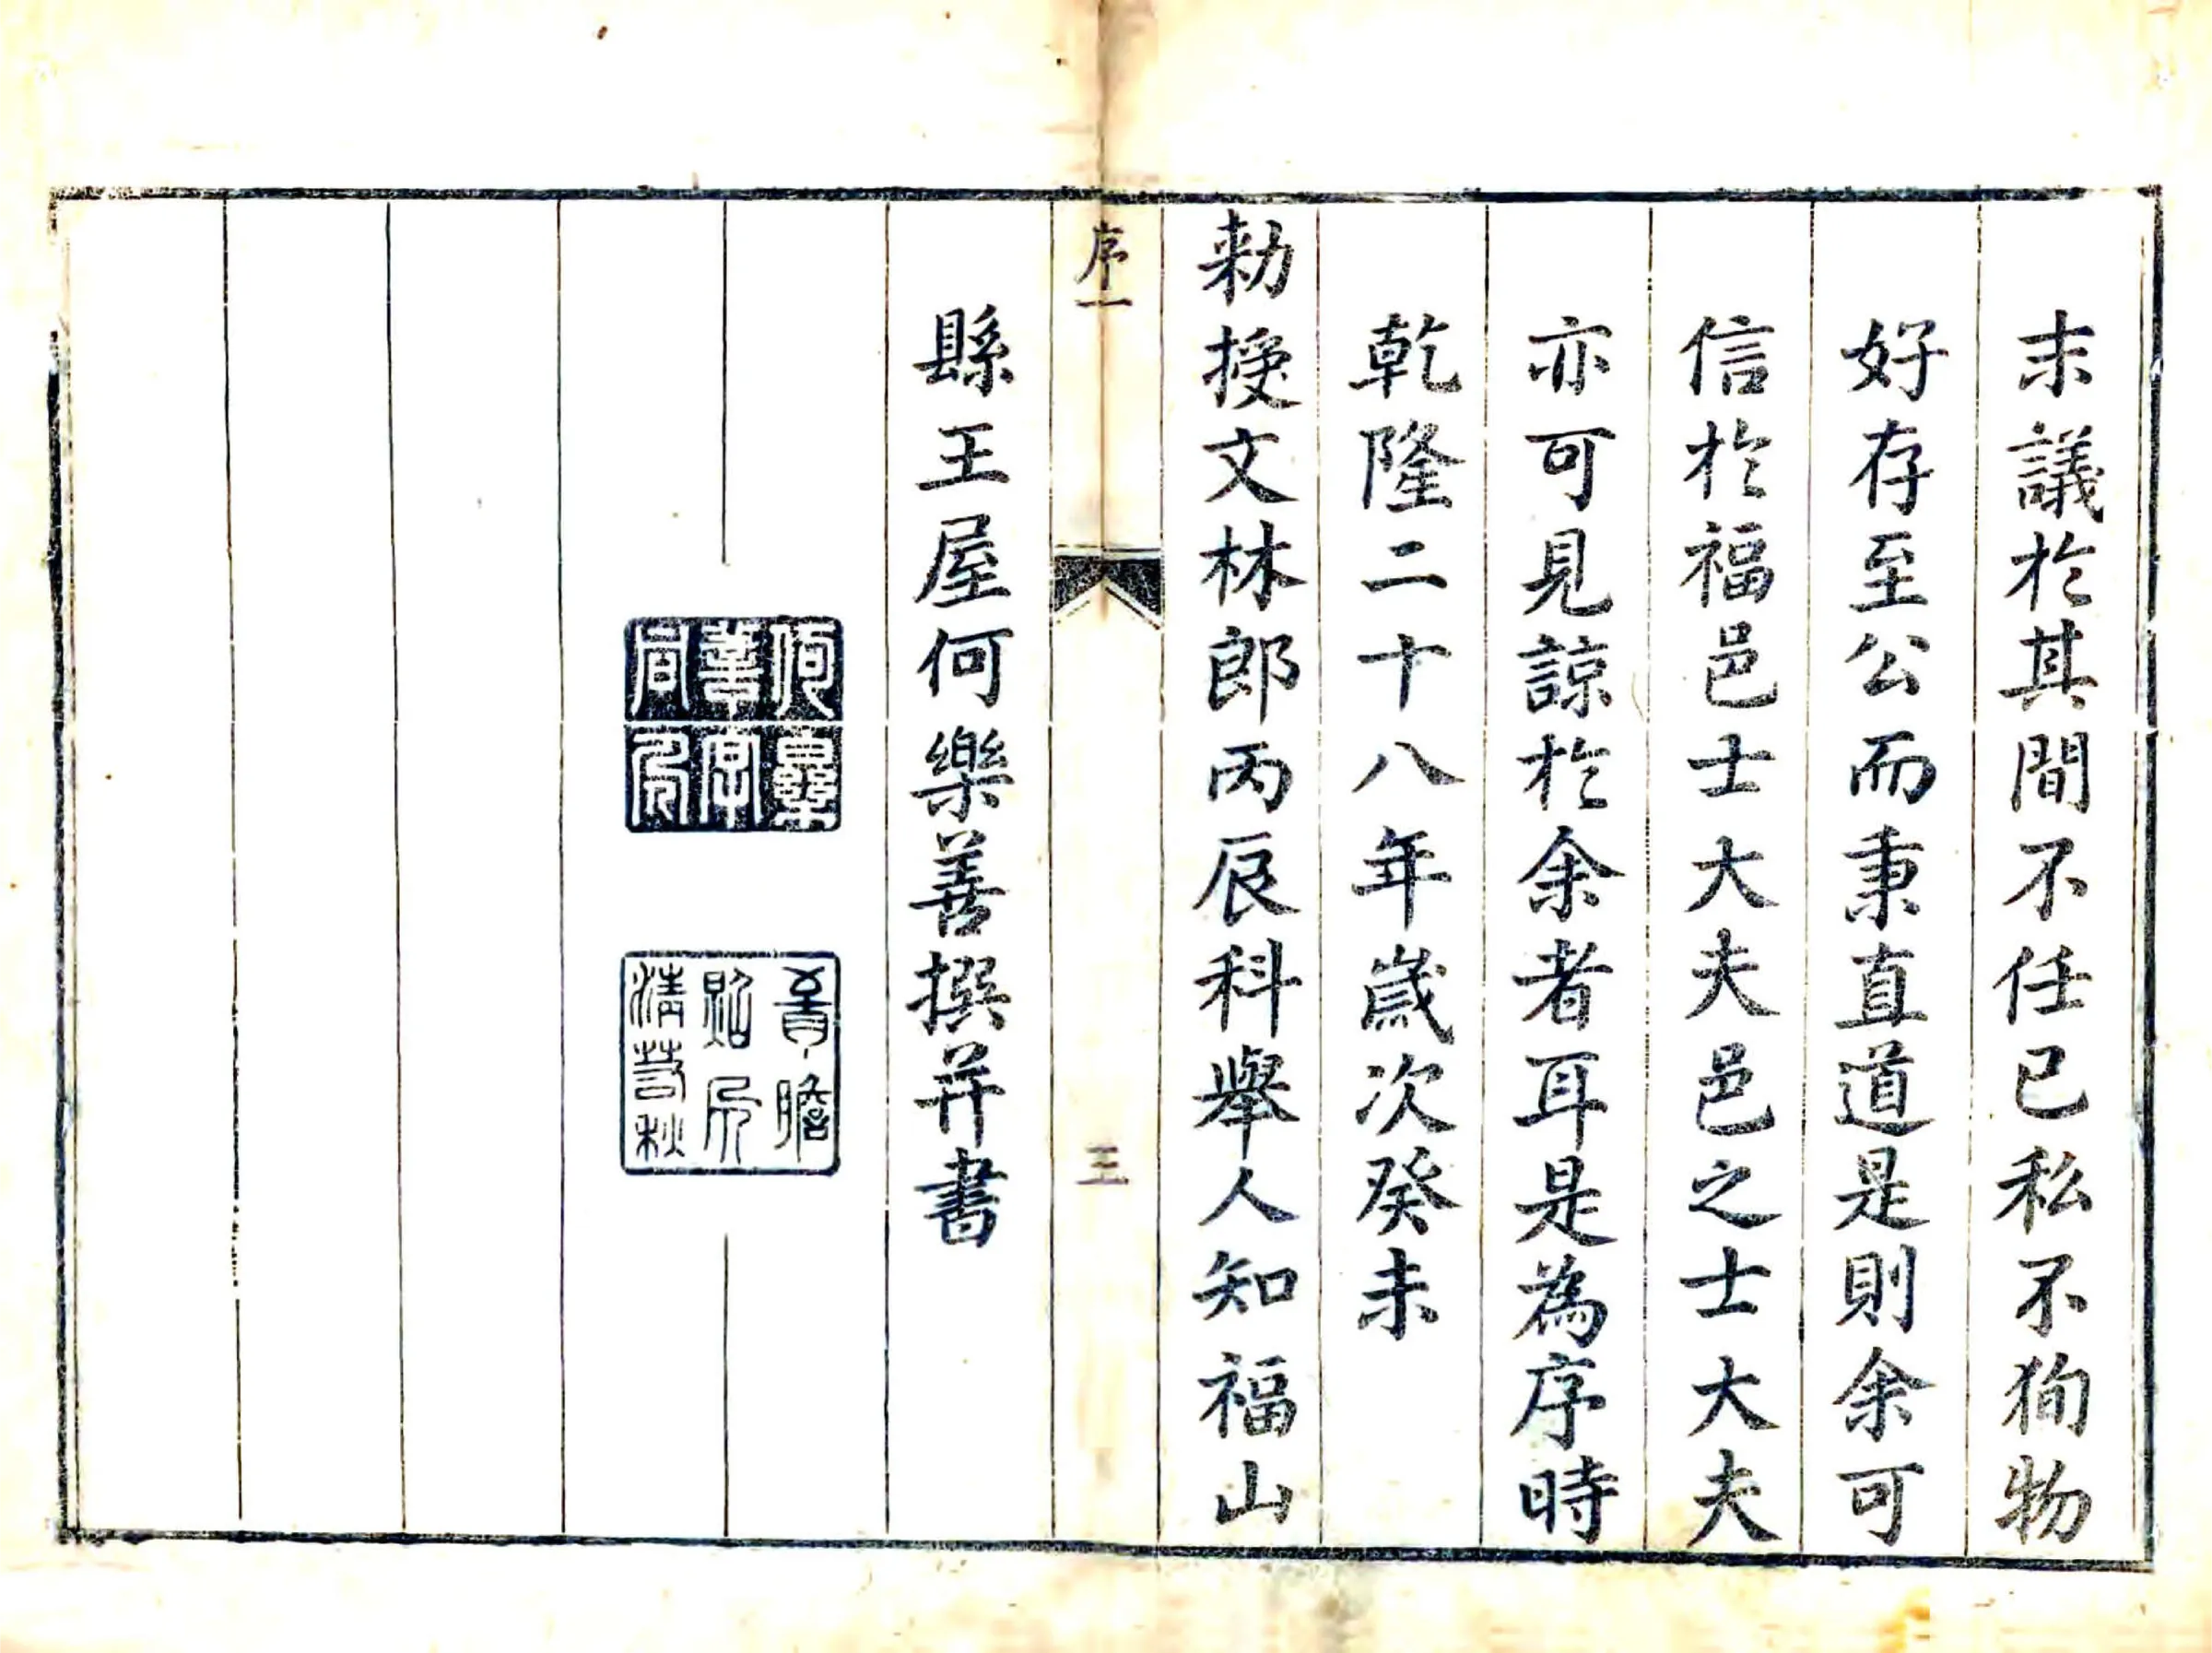 末議於其間不任己私不狥物
好存至公而秉直道是則余可
信於福邑士大夫邑之士大夫
亦可見諒於余者耳是為序時
乾隆二十八年歲次癸未
勅授文林郎丙辰科舉人知福山
序一
三
縣王屋何樂善撰并書